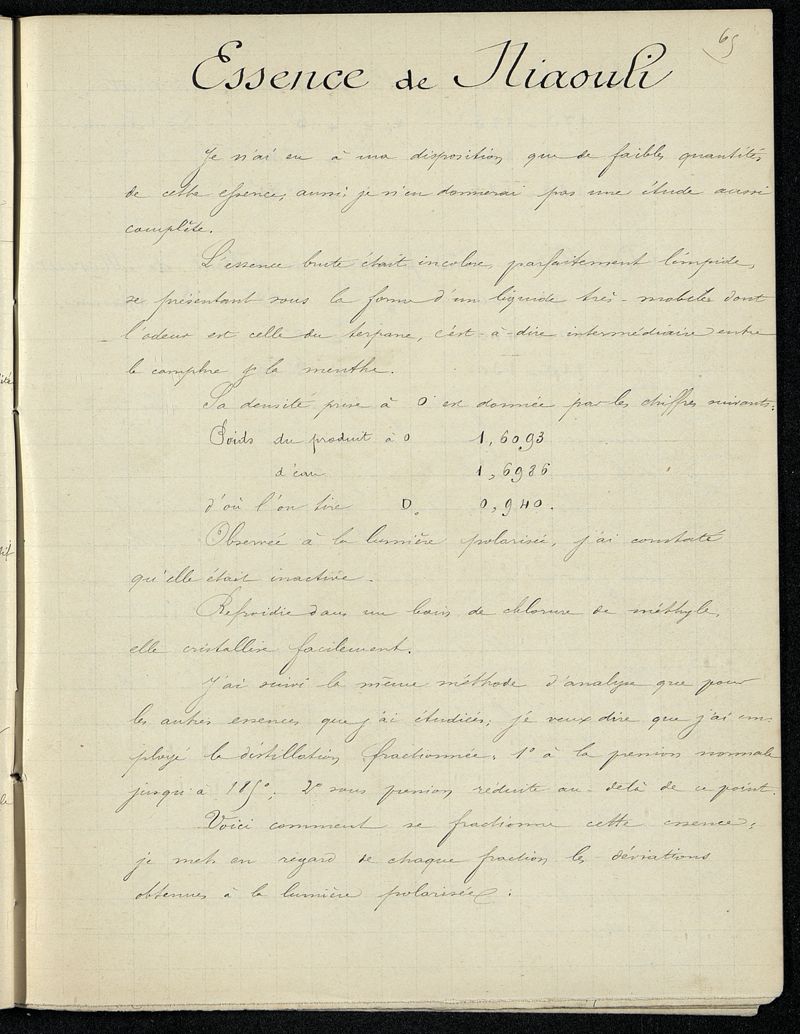 65
Essence de Niaouli
Je n'ai eu à ma disposition que de faibles quantités
de cette essence, aussi je n'en donnerai pas une étude aussi
complète.
L'essence brute était incolore, parfaitement limpide,
se présentant sous la forme d'un liquide très-mobile dont
l'odeur est celle du terpane, c'est-à-dire intermédiaire entre
le camphre & la menthe.
Sa densité prise à 0° est donnée par les chiffres suivants:
Poids du produit à 0 1,6093
d'eau 1,6986
d'où l'on tire D. 0,940.
Observée à la lumière polarisée, j'ai constaté
qu'elle était inactive.
Refroidie dans un bain de chlorure de méthyle,
elle cristallise facilement.
J'ai suivi la même méthode d'analyse que pour
les autres essences que j'ai étudiées; je veux dire que j'ai em-
ployé la distillation fractionnée: 1° à la pression normale
jusqu'à 185°; 2° sous pression réduite au-delà de ce point.
Voici comment se fractionne cette essence;
je mets en regard de chaque fraction les déviations
obtenues à la lumière polarisée.